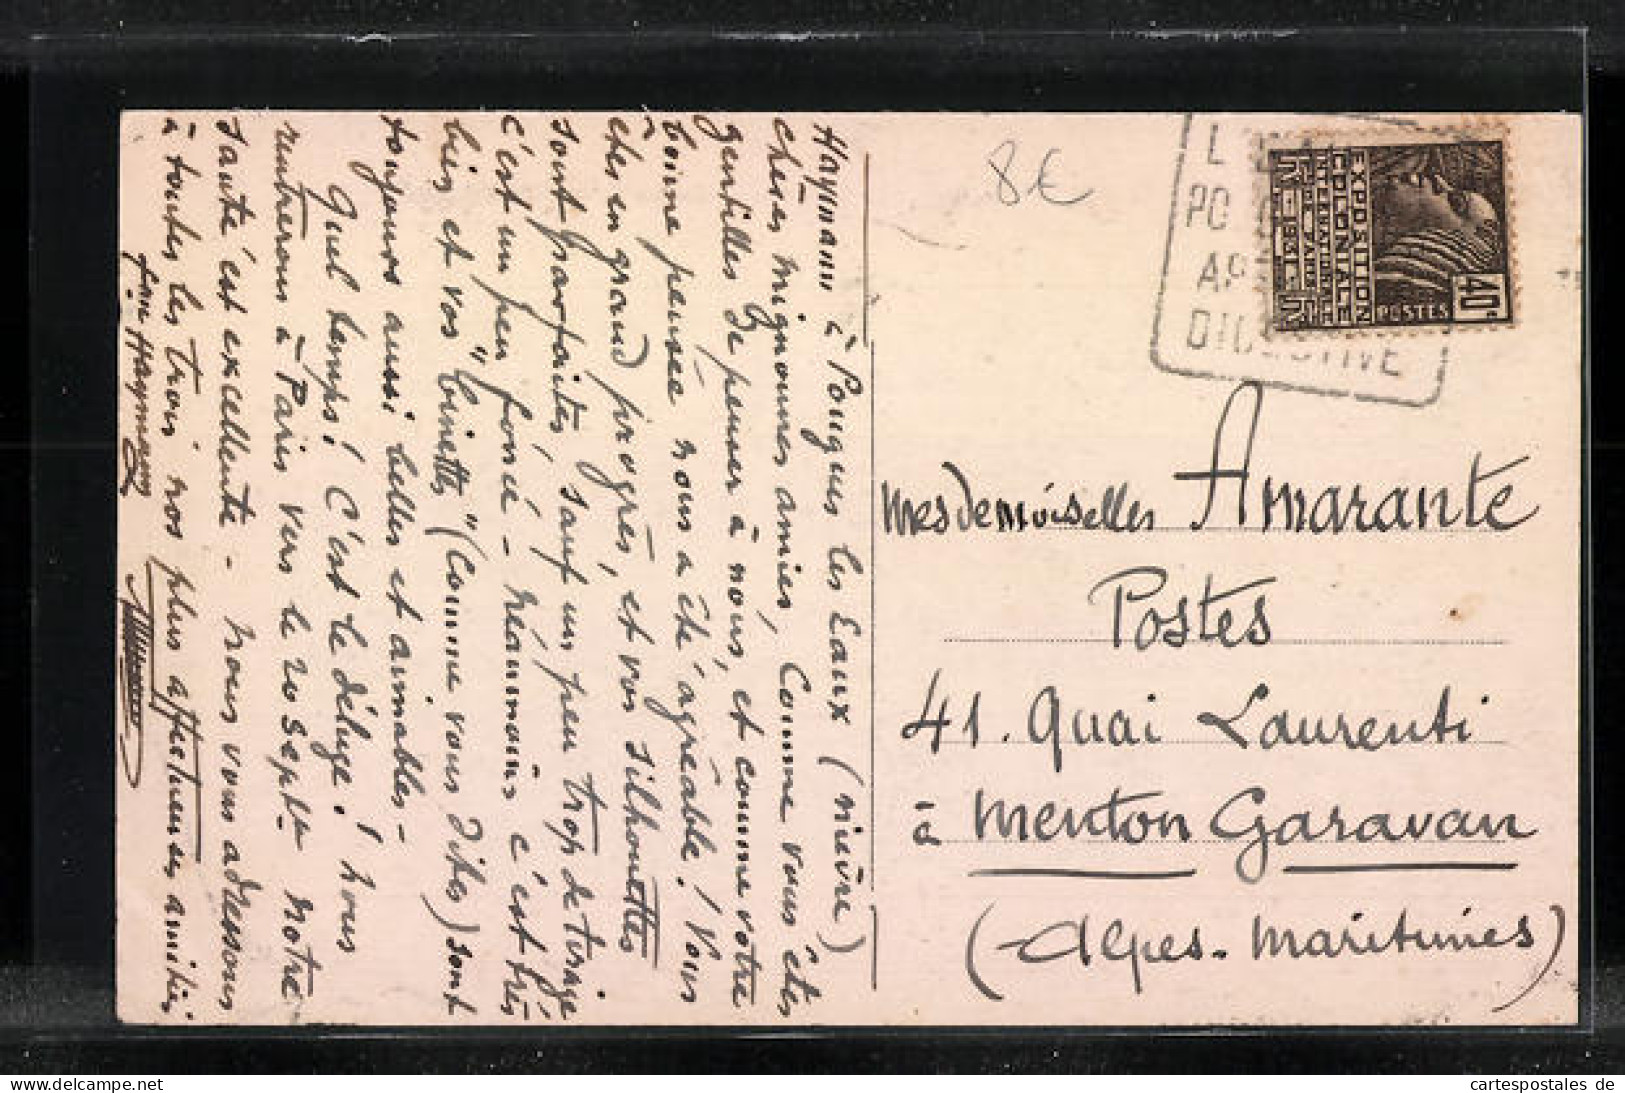 Haymann à Pougues les Eaux (Nièvre)
chères mignonnes amies, Comme vous êtes
gentilles de penser à nous, et comme votre
bonne pensée nous a été agréable! Vous
êtes en grand progrès, et vos silhouettes
sont parfaites, sauf un peu trop de tirage
c'est un peu foncé - néanmoins c'est très
bien et vos "binettes" (Comme vous dites) sont
toujours aussi belles et aimables -
Quel temps! C'est le déluge! Nous
rentrerons à Paris vers le 20 septbre Notre
santé est excellente - nous vous adressons
à toutes les trois nos plus affectueuses amitiés
Haymann
8€
L
PO
AP
DIGESTIVE
EXPOSITION
COLONIALE
INTERNATIONALE
DE PARIS
1931
POSTES
40c
Mesdemoiselles Amarante
Postes
41. Quai Laurenti
à Menton Garavan
(Alpes-Maritimes)
the-seller=cpkbay
cartespostales de